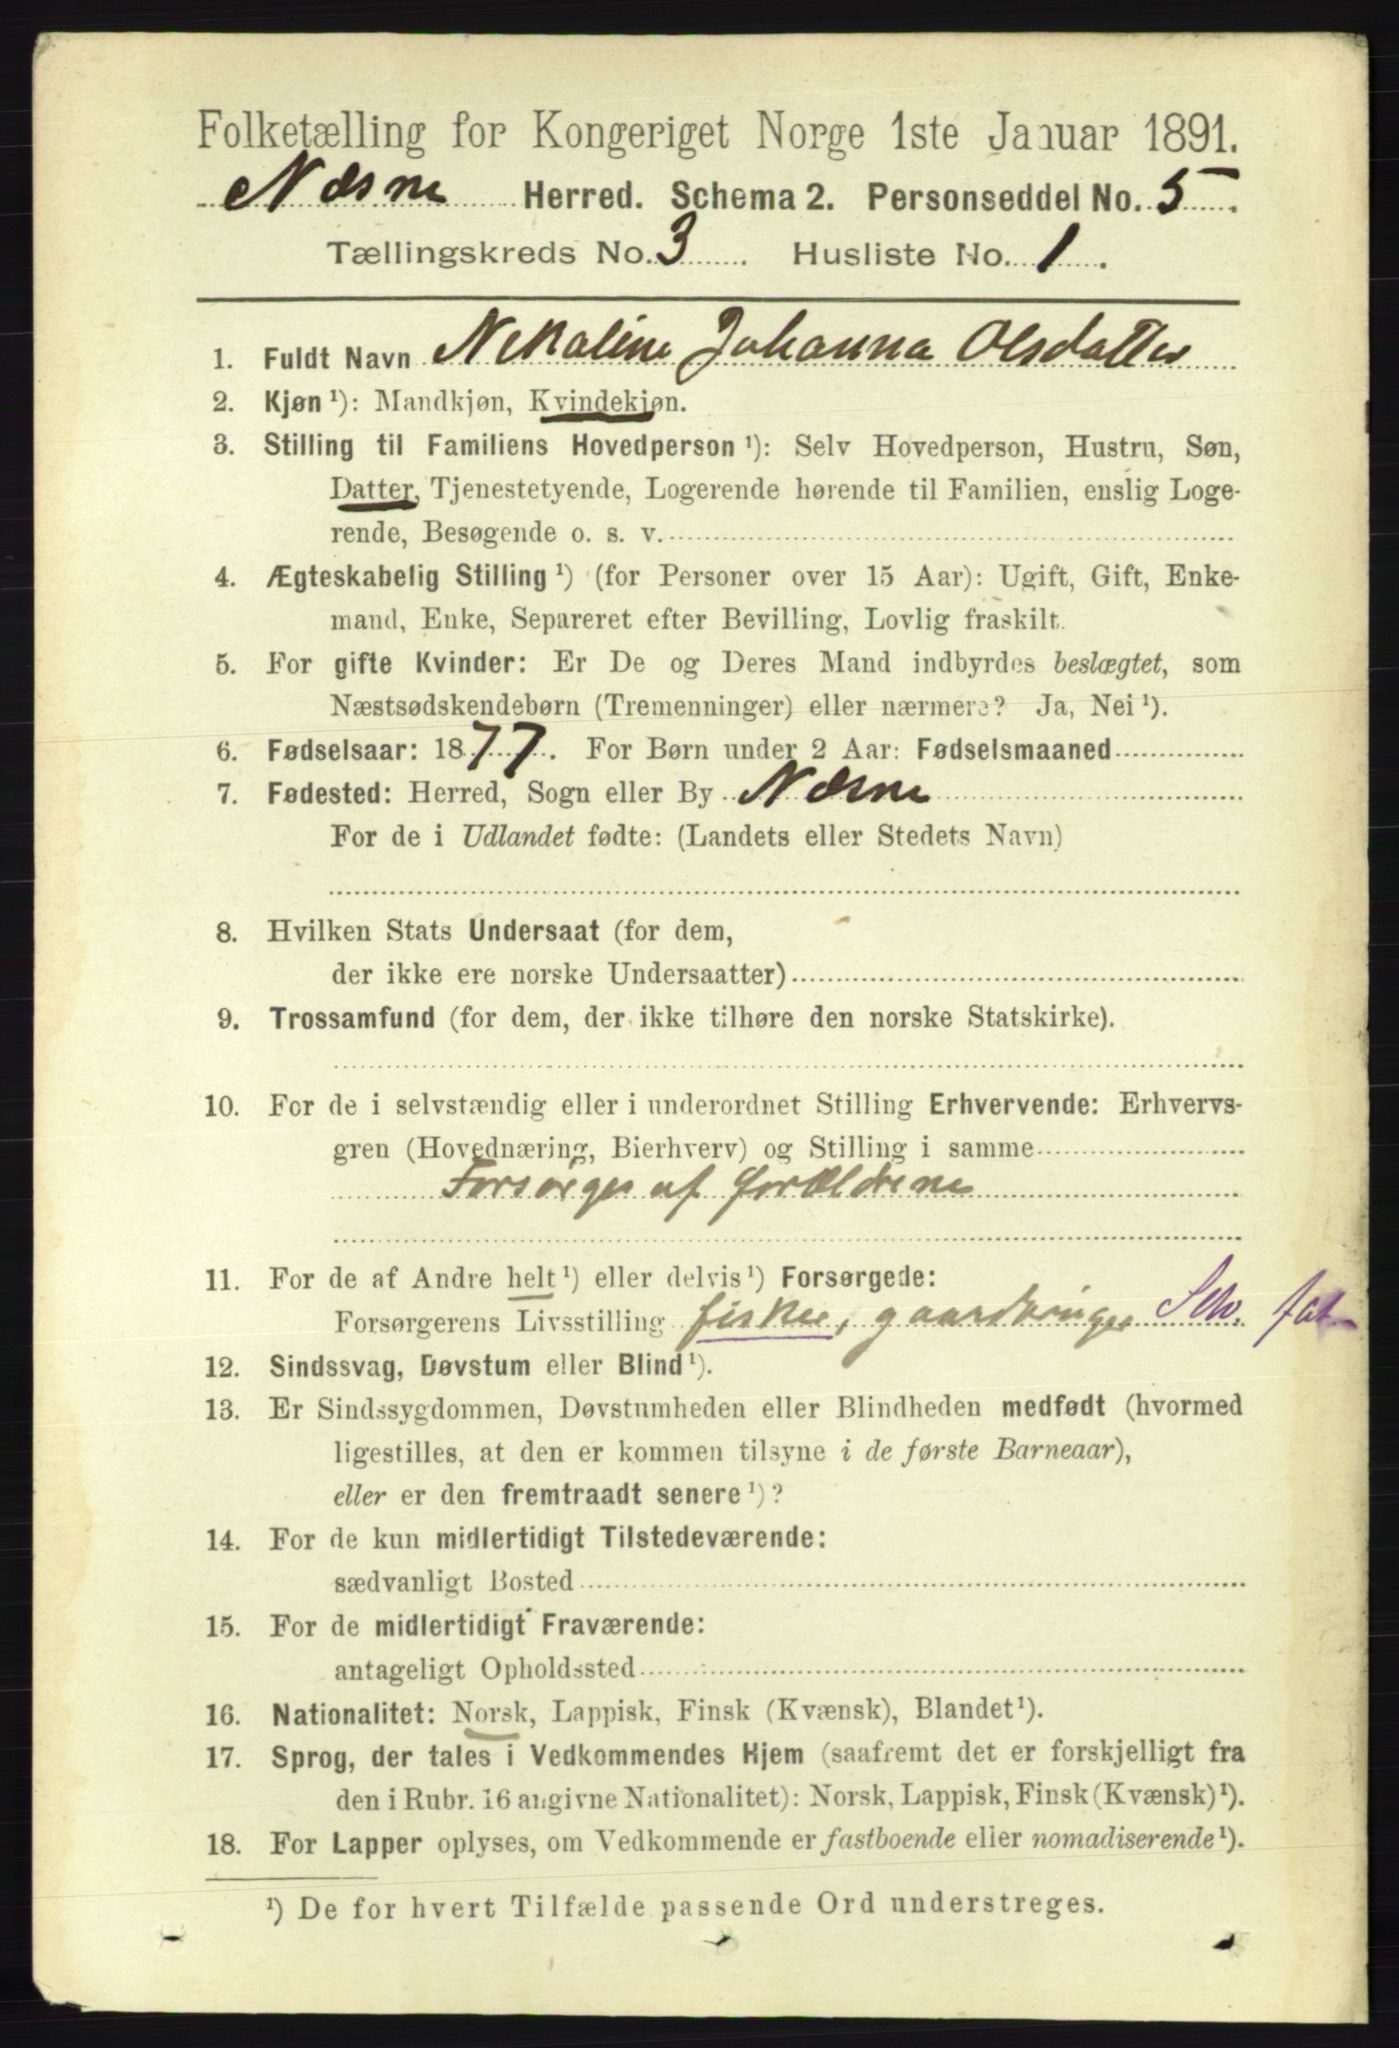 Folketælling for Kongeriget Norge 1ste Januar 1891.
Næsne Herred. Schema 2. Personseddel No. 5.
Tællingskreds No. 3. Husliste No. 1.
1. Fuldt Navn Nikoline Johanna Olsdatter
2. Kjøn ¹): Mandkjøn, Kvindekjøn.
3. Stilling til Familiens Hovedperson ¹): Selv Hovedperson, Hustru, Søn,
Datter, Tjenestetyende, Logerende hørende til Familien, enslig Loge-
rende, Besøgende o. s. v.
4. Ægteskabelig Stilling ¹) (for Personer over 15 Aar): Ugift, Gift, Enke-
mand, Enke, Separeret efter Bevilling, Lovlig fraskilt.
5. For gifte Kvinder: Er De og Deres Mand indbyrdes beslægtet, som
Næstsødskendebørn (Tremenninger) eller nærmere? Ja, Nei ¹).
6. Fødselsaar: 1877. For Børn under 2 Aar: Fødselsmaaned
7. Fødested: Herred, Sogn eller By Næsne
For de i Udlandet fødte: (Landets eller Stedets Navn)
8. Hvilken Stats Undersaat (for dem,
der ikke ere norske Undersaatter)
9. Trossamfund (for dem, der ikke tilhøre den norske Statskirke).
10. For de i selvstændig eller i underordnet Stilling Erhvervende: Erhvervs-
gren (Hovednæring, Bierhverv) og Stilling i samme
Forsørges af forældrene
11. For de af Andre helt ¹) eller delvis ¹) Forsørgede:
Forsørgerens Livsstilling fisker, gaardbruger Selv. fat
12. Sindssvag, Døvstum eller Blind ¹).
13. Er Sindssygdommen, Døvstumheden eller Blindheden medfødt (hvormed
ligestilles, at den er kommen tilsyne i de første Barneaar),
eller er den fremtraadt senere ¹)?
14. For de kun midlertidigt Tilstedeværende:
sædvanligt Bosted
15. For de midlertidigt Fraværende:
antageligt Opholdssted
16. Nationalitet: Norsk, Lappisk, Finsk (Kvænsk), Blandet ¹).
17. Sprog, der tales i Vedkommendes Hjem (saafremt det er forskjelligt fra
den i Rubr. 16 angivne Nationalitet): Norsk, Lappisk, Finsk (Kvænsk) ¹).
18. For Lapper oplyses, om Vedkommende er fastboende eller nomadiserende ¹).
¹) De for hvert Tilfælde passende Ord understreges.